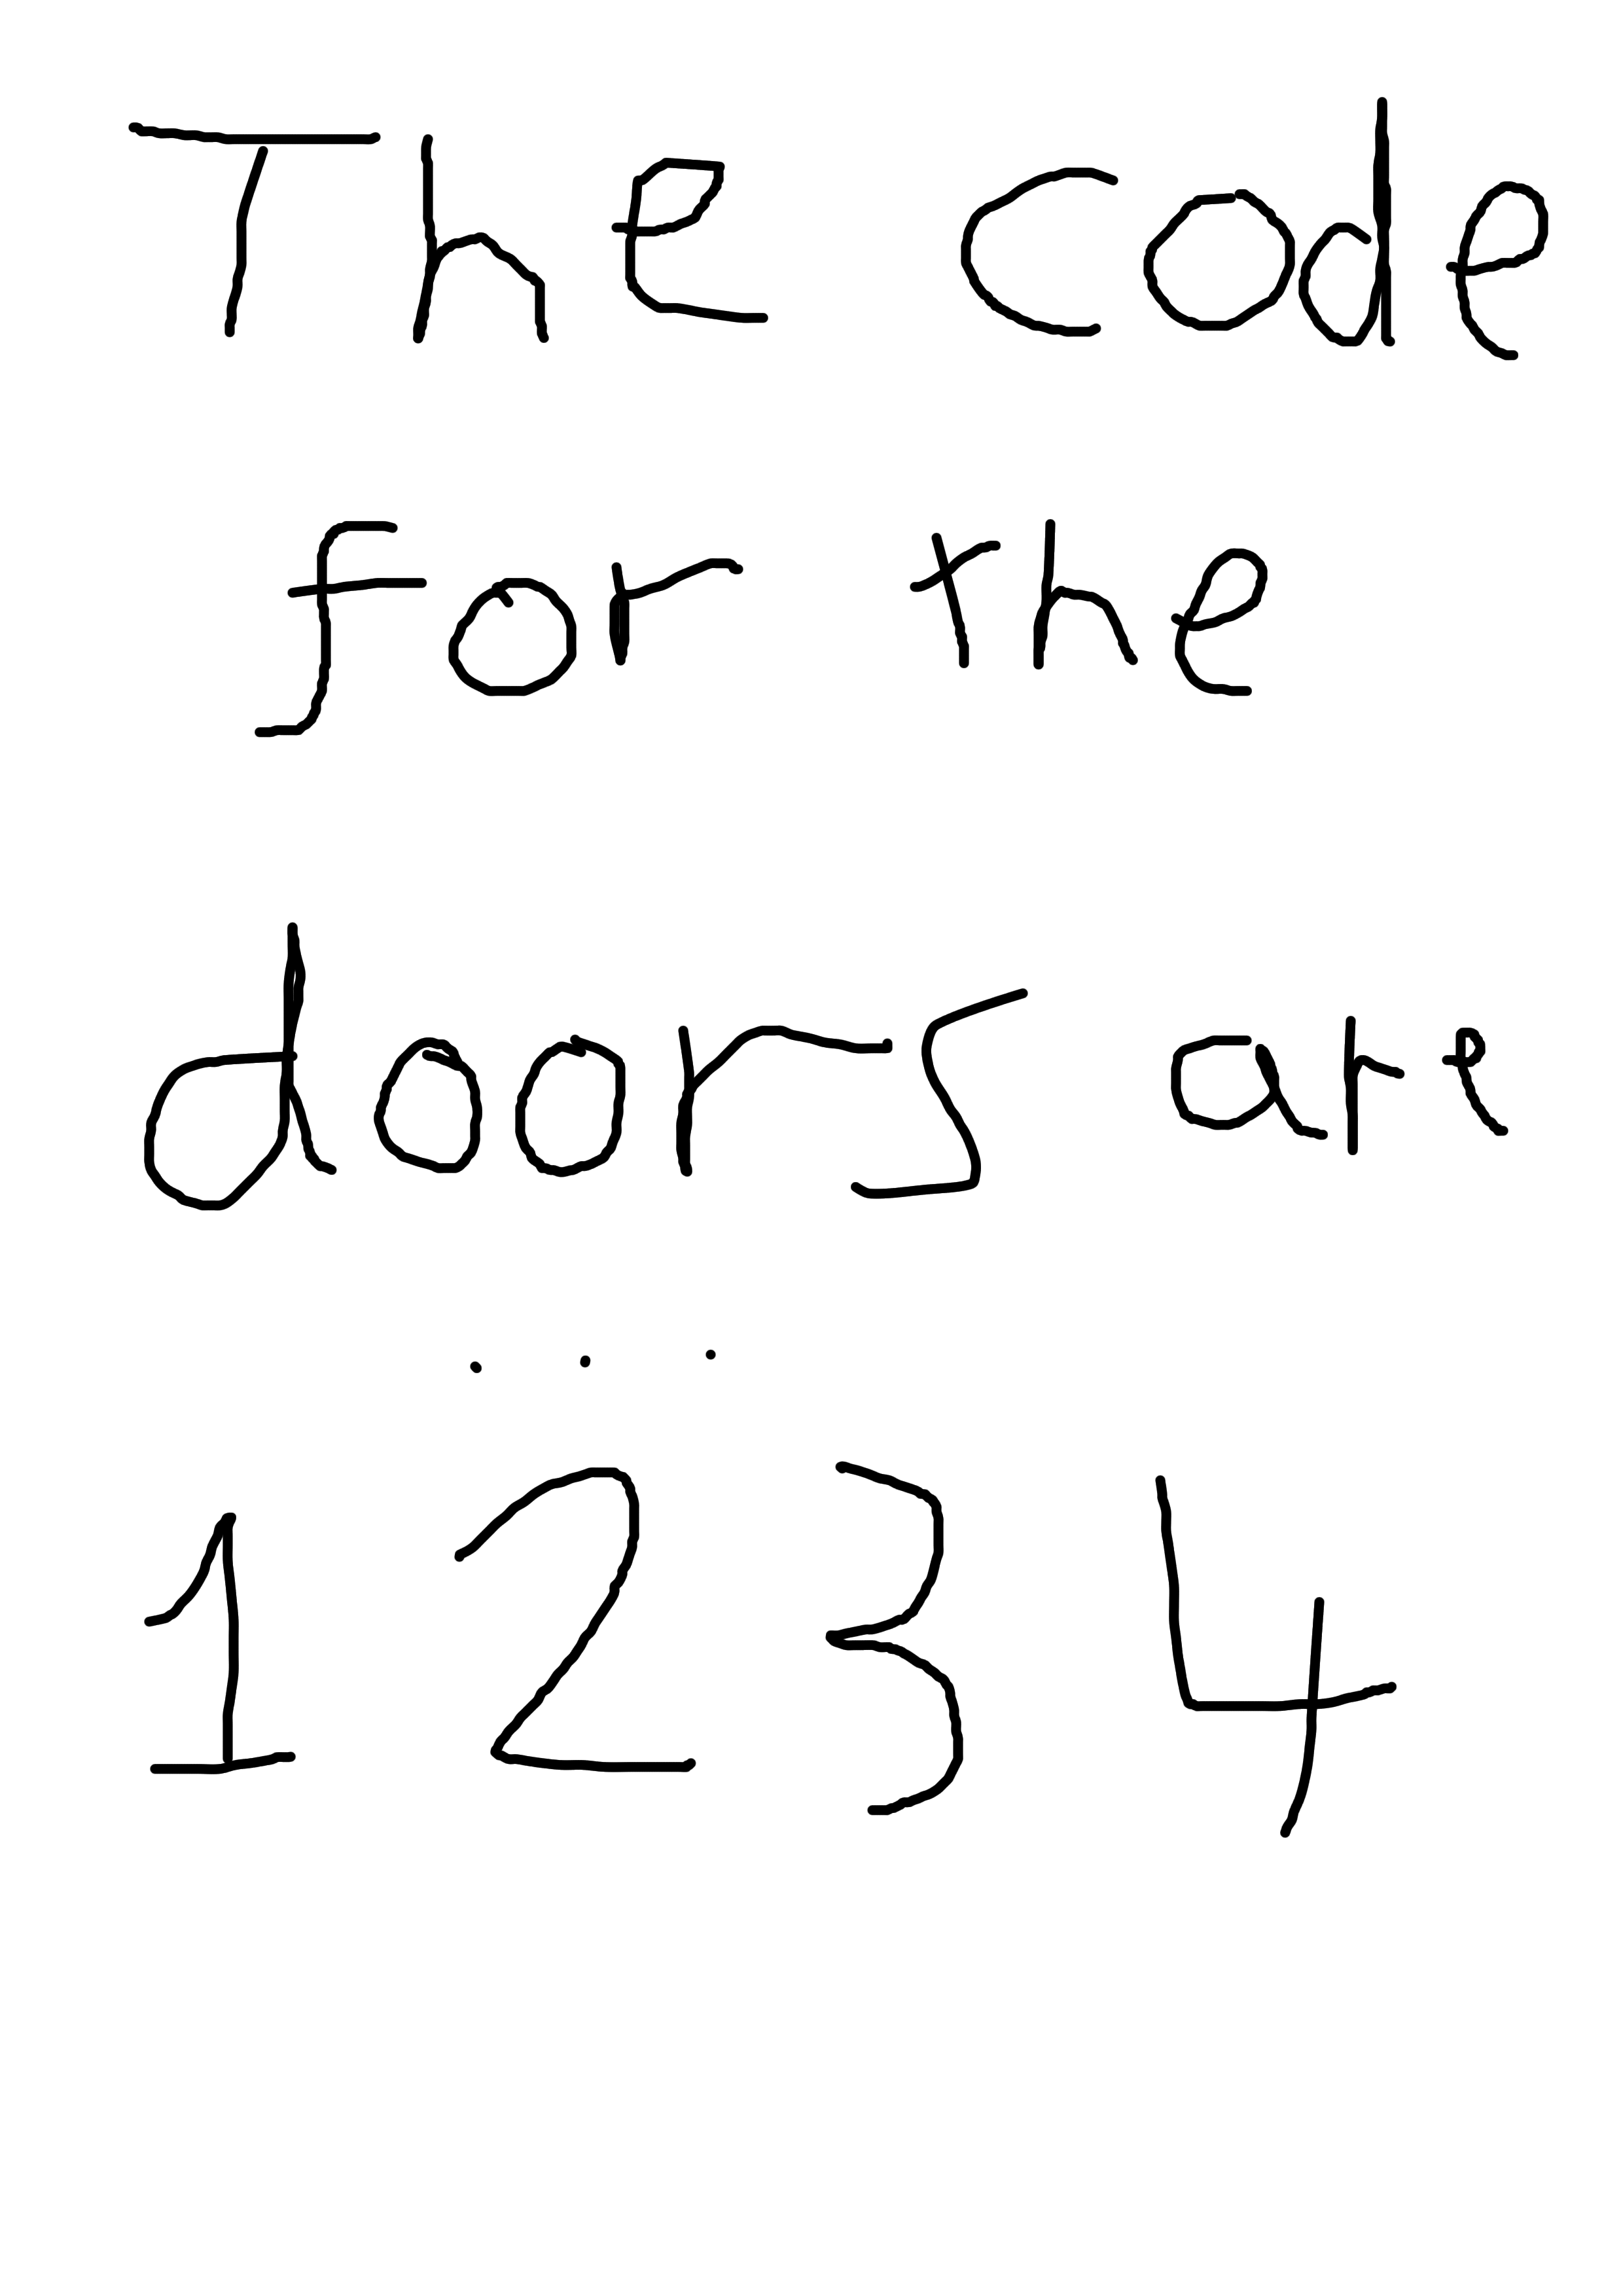 The code
for the
doors are
...
1 2 3 4